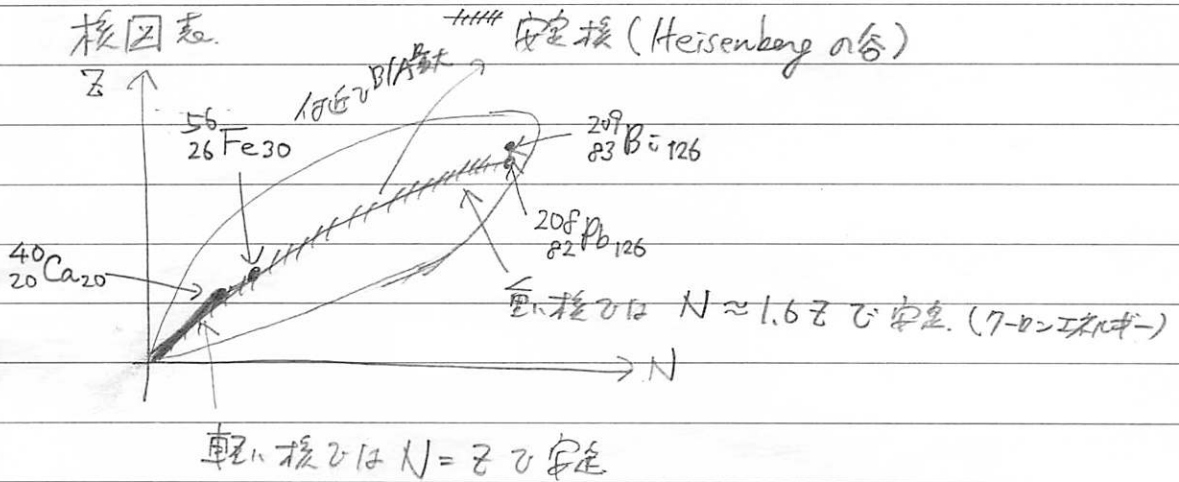 核図表
安定核 (Heisenberg の谷)
Z
付近で B/A 最大
⁵⁶₂₆Fe₃₀
²⁰⁹₈₃Bi₁₂₆
²⁰⁸₈₂Pb₁₂₆
⁴⁰₂₀Ca₂₀
重い核では N ≈ 1.6 Z で 安定. (クーロンエネルギー)
N
軽い核では N = Z で 安定